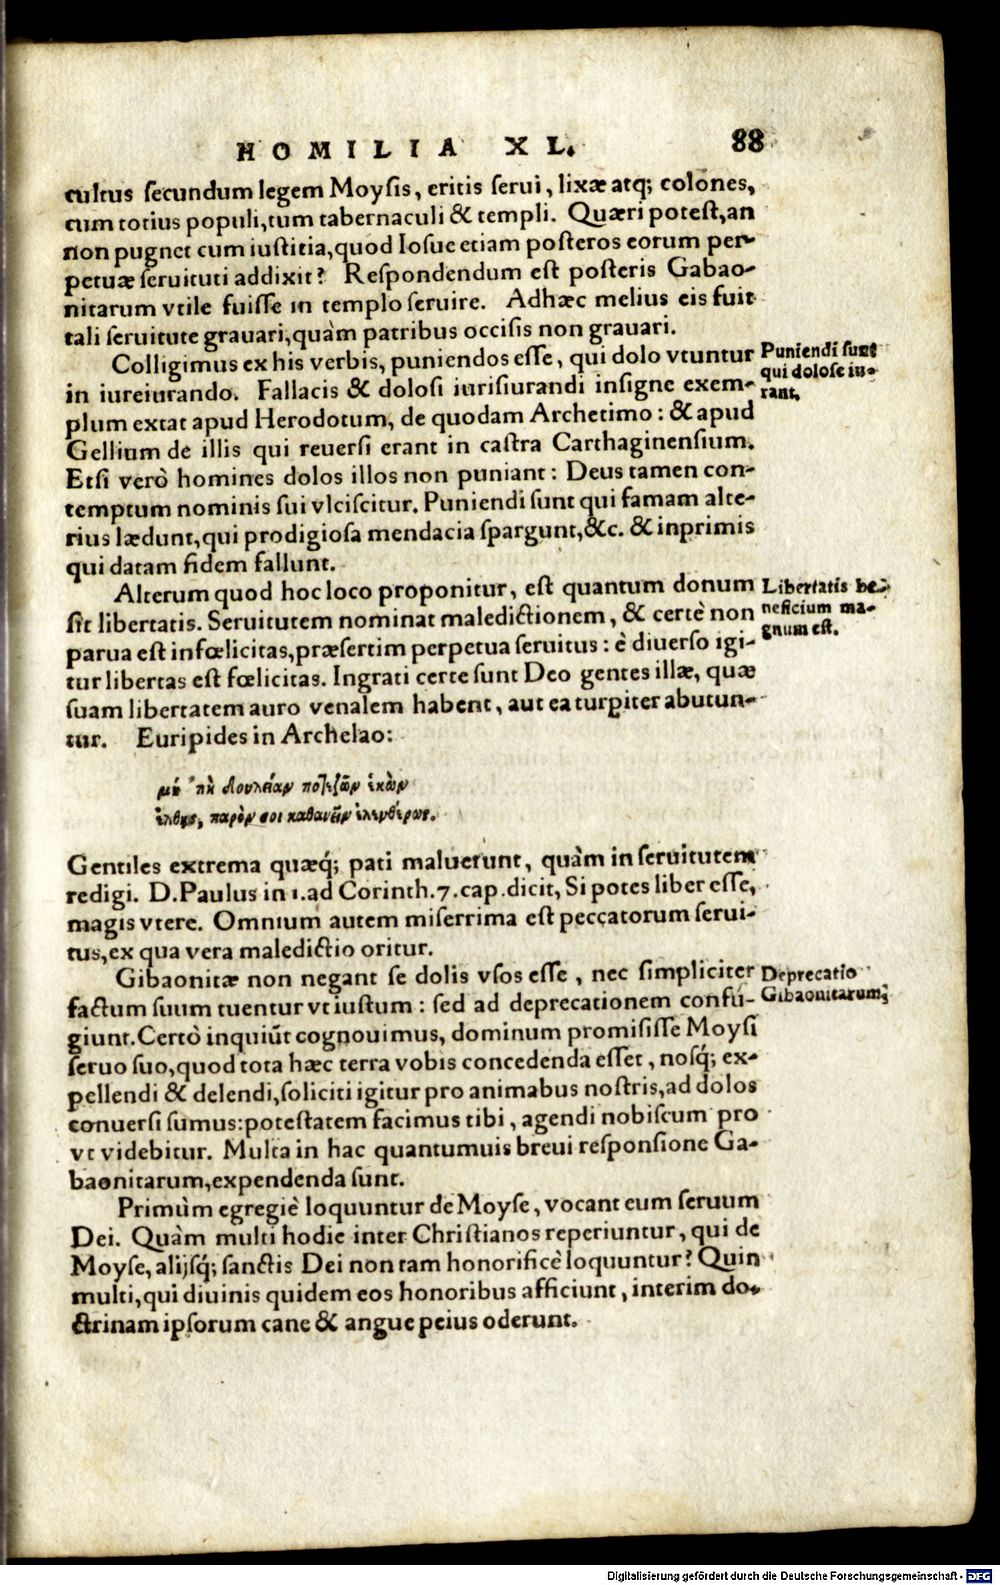 HOMILIA XL. 88
cultus secundum legem Moysis, eritis serui, lixæ atq; colones,
cum totius populi, tum tabernaculi & templi. Quæri potest, an
non pugnet cum iustitia, quod Iosue etiam posteros eorum per-
petuæ seruituti addixit? Respondendum est posteris Gabao-
nitarum vtile fuisse in templo seruire. Adhæc melius eis fuit
tali seruitute grauari, quàm patribus occisis non grauari.
Colligimus ex his verbis, puniendos esse, qui dolo vtuntur
in iureiurando. Fallacis & dolosi iurisiurandi insigne exem-
plum extat apud Herodotum, de quodam Archetimo: & apud
Gellium de illis qui reuersi erant in castra Carthaginensium.
Etsi verò homines dolos illos non puniant: Deus tamen con-
temptum nominis sui vlciscitur. Puniendi sunt qui famam alte-
rius lædunt, qui prodigiosa mendacia spargunt, &c. & inprimis
qui datam fidem fallunt.
Puniendi sunt
qui dolose iu-
rant.
Alterum quod hoc loco proponitur, est quantum donum
sit libertatis. Seruitutem nominat maledictionem, & certè non
parua est infœlicitas, præsertim perpetua seruitus: è diuerso igi-
tur libertas est fœlicitas. Ingrati certe sunt Deo gentes illæ, quæ
suam libertatem auro venalem habent, aut ea turpiter abutun-
tur. Euripides in Archelao:
Libertatis be-
neficium ma-
gnum est.
δουλείαν ἑκὼν
παρὸν σοι καθανεῖν ἐλευθέρως.
Gentiles extrema quæq; pati maluerunt, quàm in seruitutem
redigi. D. Paulus in 1. ad Corinth. 7. cap. dicit, Si potes liber esse,
magis vtere. Omnium autem miserrima est peccatorum serui-
tus, ex qua vera maledictio oritur.
Gibaonitæ non negant se dolis vsos esse, nec simpliciter
factum suum tuentur vt iustum: sed ad deprecationem confu-
giunt. Certò inquiūt cognouimus, dominum promisisse Moysi
seruo suo, quod tota hæc terra vobis concedenda esset, nosq; ex-
pellendi & delendi, soliciti igitur pro animabus nostris, ad dolos
conuersi sumus: potestatem facimus tibi, agendi nobiscum pro
vt videbitur. Multa in hac quantumuis breui responsione Ga-
baonitarum, expendenda sunt.
Deprecatio
Gibaonitarum.
Primùm egregiè loquuntur de Moyse, vocant eum seruum
Dei. Quàm multi hodie inter Christianos reperiuntur, qui de
Moyse, alijsq; sanctis Dei non tam honorificè loquuntur? Quin
multi, qui diuinis quidem eos honoribus afficiunt, interim do-
ctrinam ipsorum cane & angue peius oderunt.
Digitalisierung gefördert durch die Deutsche Forschungsgemeinschaft - DFG